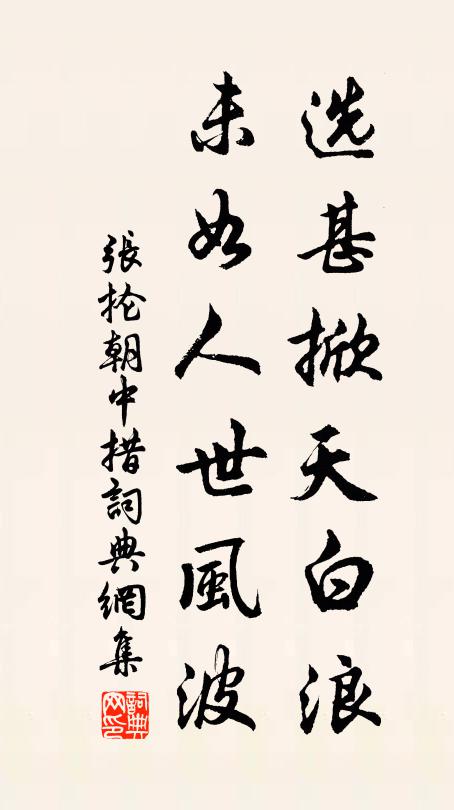 选甚掀天白浪
未如人世風波
張抡朝中措詞典網集
詞典
网印